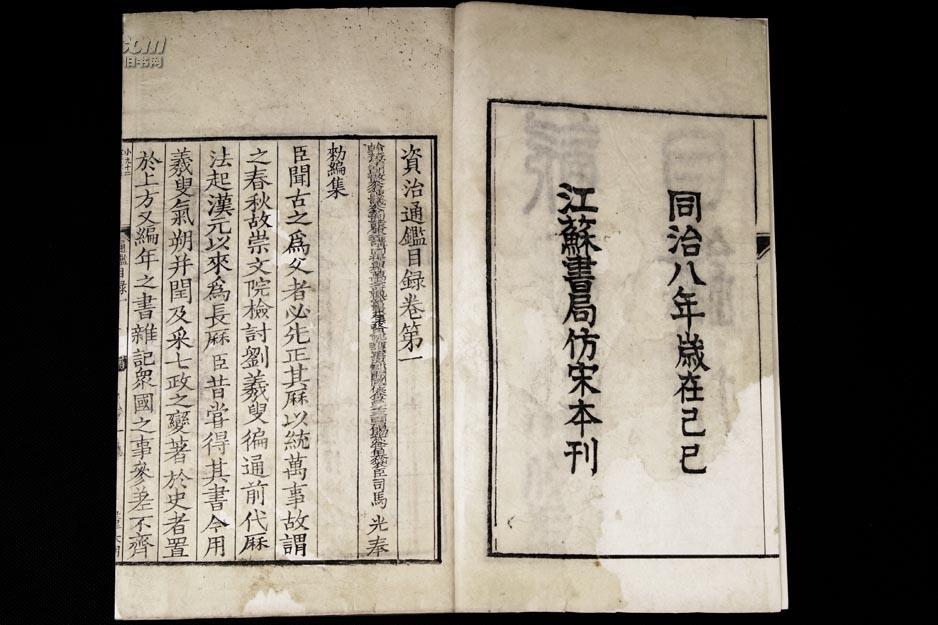 同治八年歲在己巳
江蘇書局仿宋本刊
資治通鑑目録卷第一
臣司馬 光奉
勑編集
臣聞古之爲史者必先正其厤以統萬事故謂
之春秋故崇文院檢討劉羲叟徧通前代厤
法起漢元以來爲長厤臣昔甞得其書今用
羲叟氣朔并閏及采七政之變著於史者置
於上方又編年之書雜記衆國之事參差不齊
鑑目録一
com
旧书网